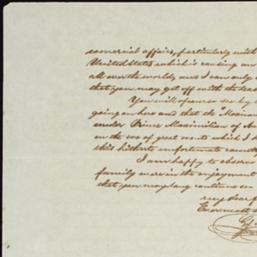 comercial affairs, particularly with
United States which is causing an
all over the world, and I can only
that you may get off with the lea
You will of course see by
going on here and that the "Monar
under Prince Maximilian of Au
on the eve of great events which I
this hitherto unfortunate count
I am happy to observe
family are in the enjoyment
that you may long continue so
my dear